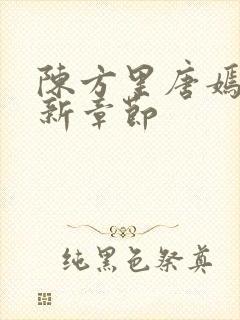 陳方里唐嫣
新章節
純黑色祭奠